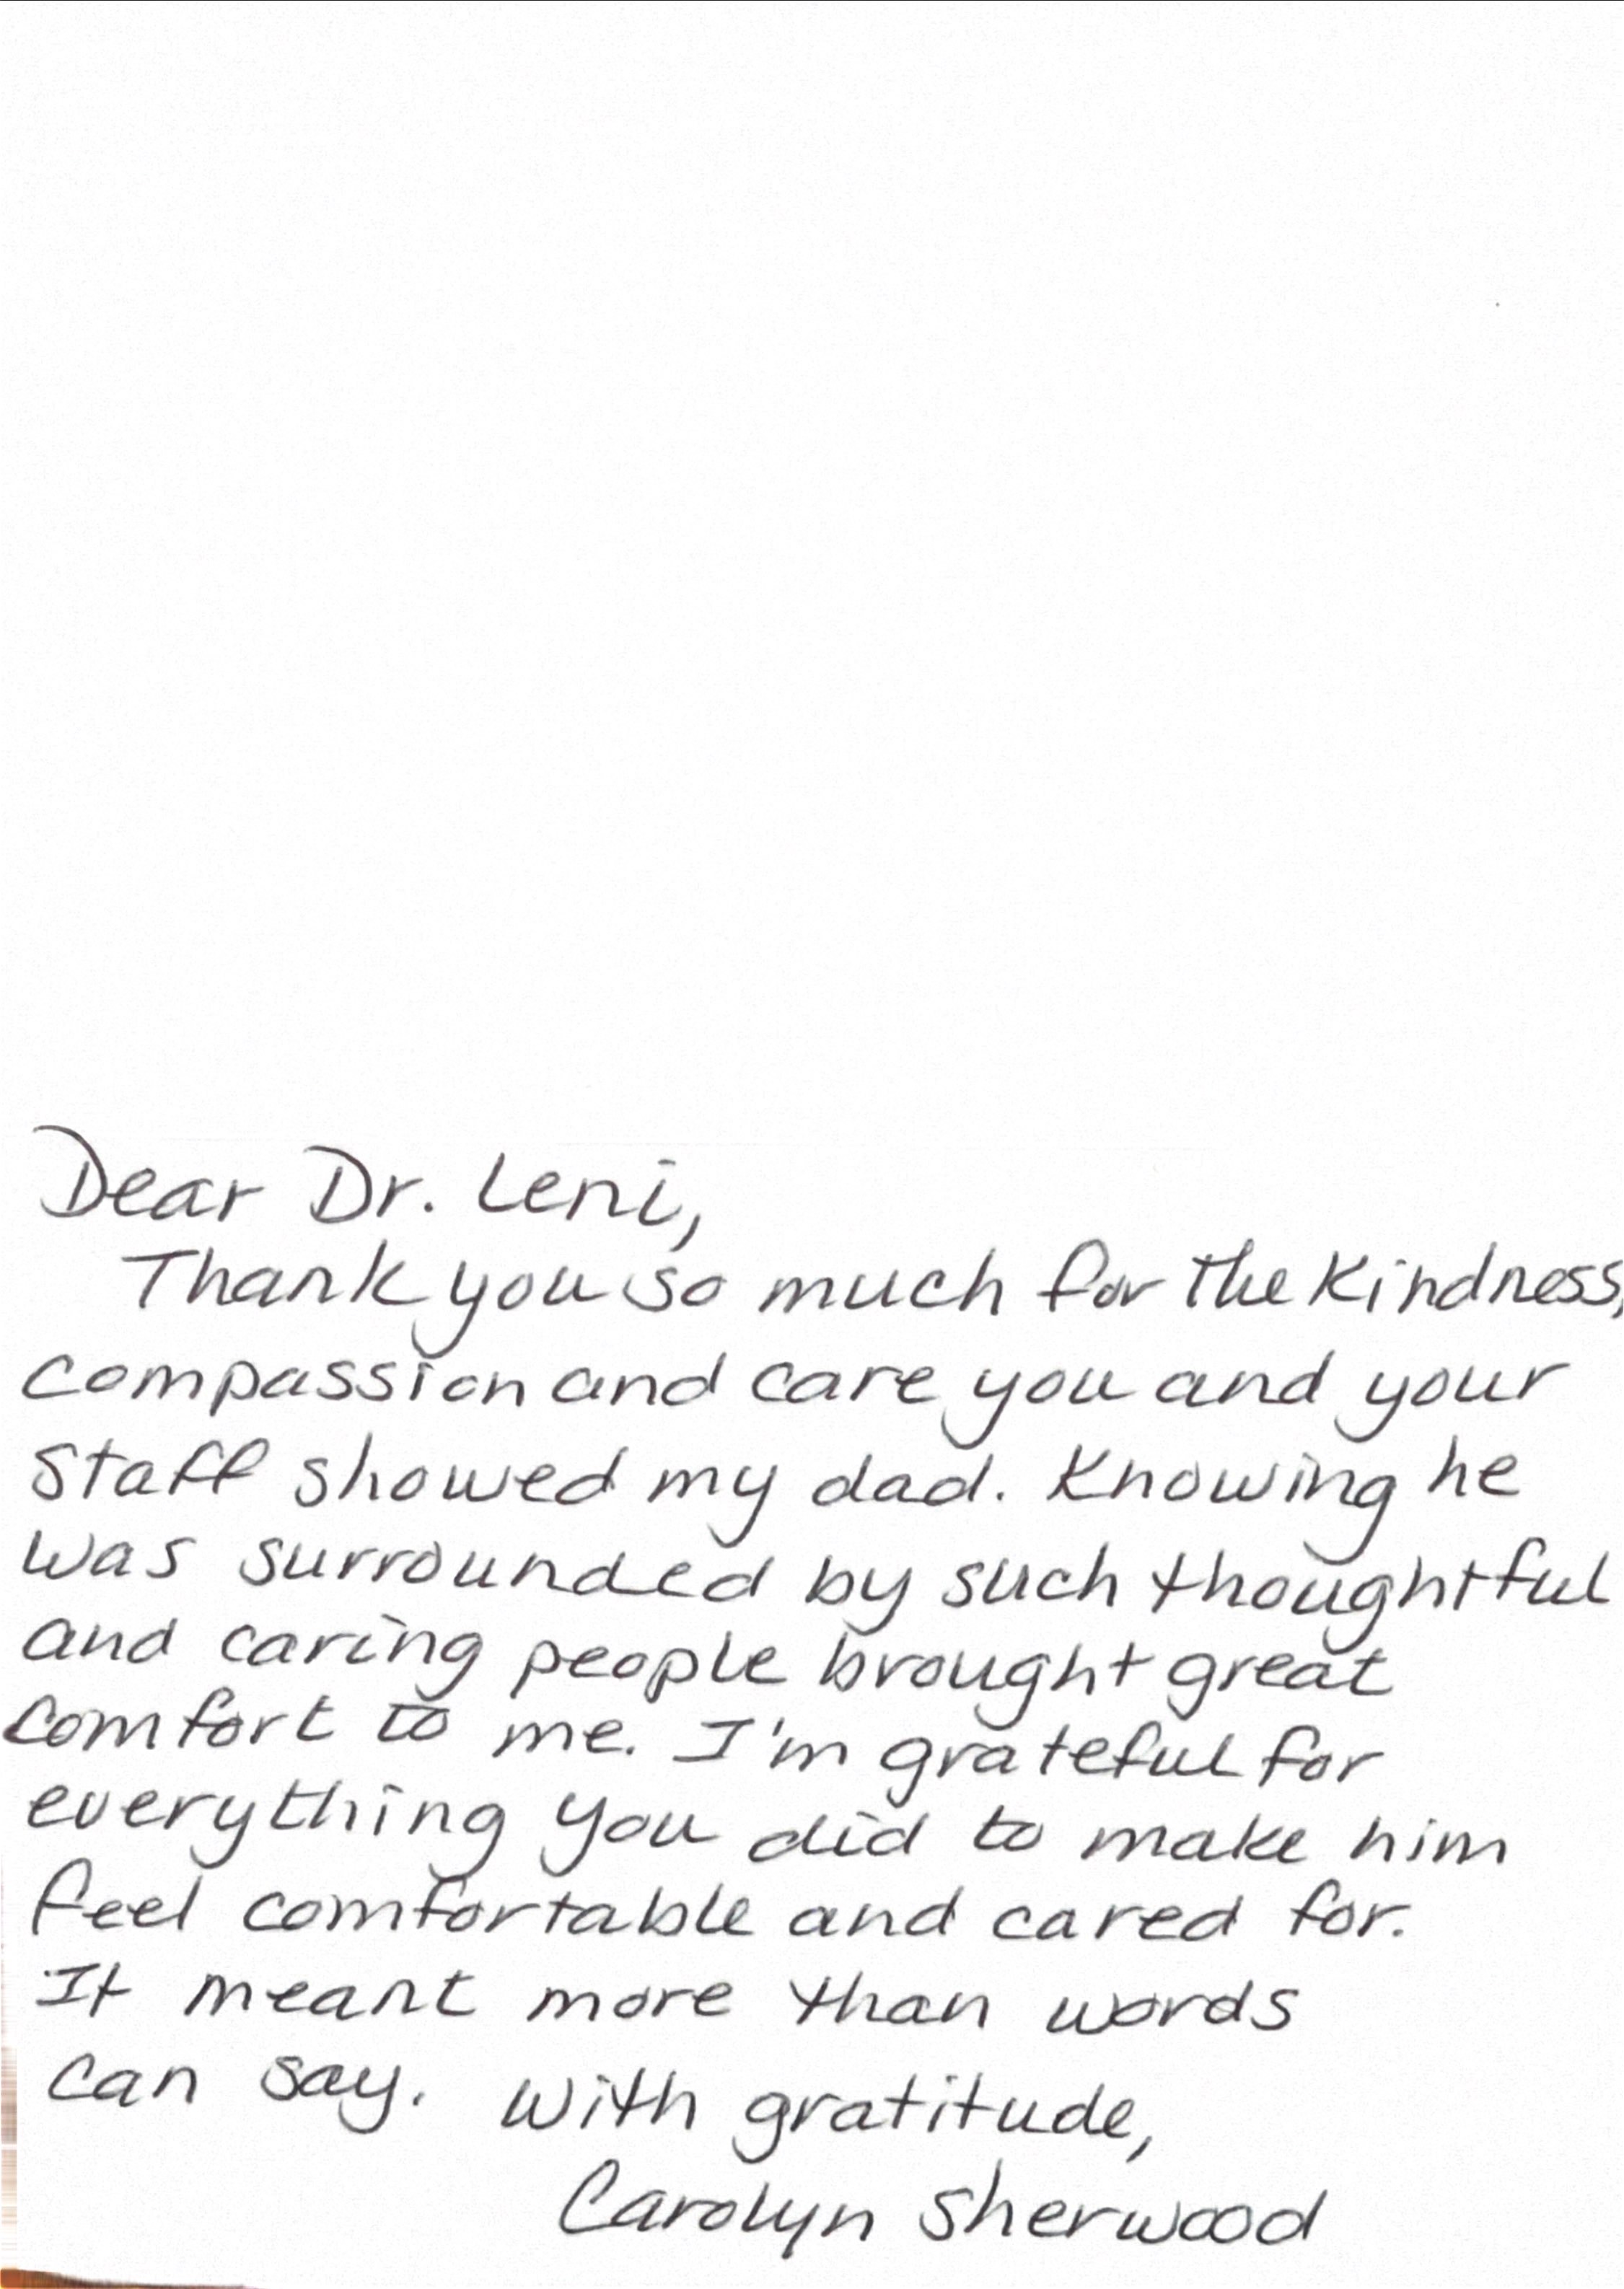 Dear Dr. Leni,
Thank you so much for the kindness,
compassion and care you and your
staff showed my dad. Knowing he
was surrounded by such thoughtful
and caring people brought great
comfort to me. I'm grateful for
everything you did to make him
feel comfortable and cared for.
It meant more than words
can say. With gratitude,
Carolyn Sherwood